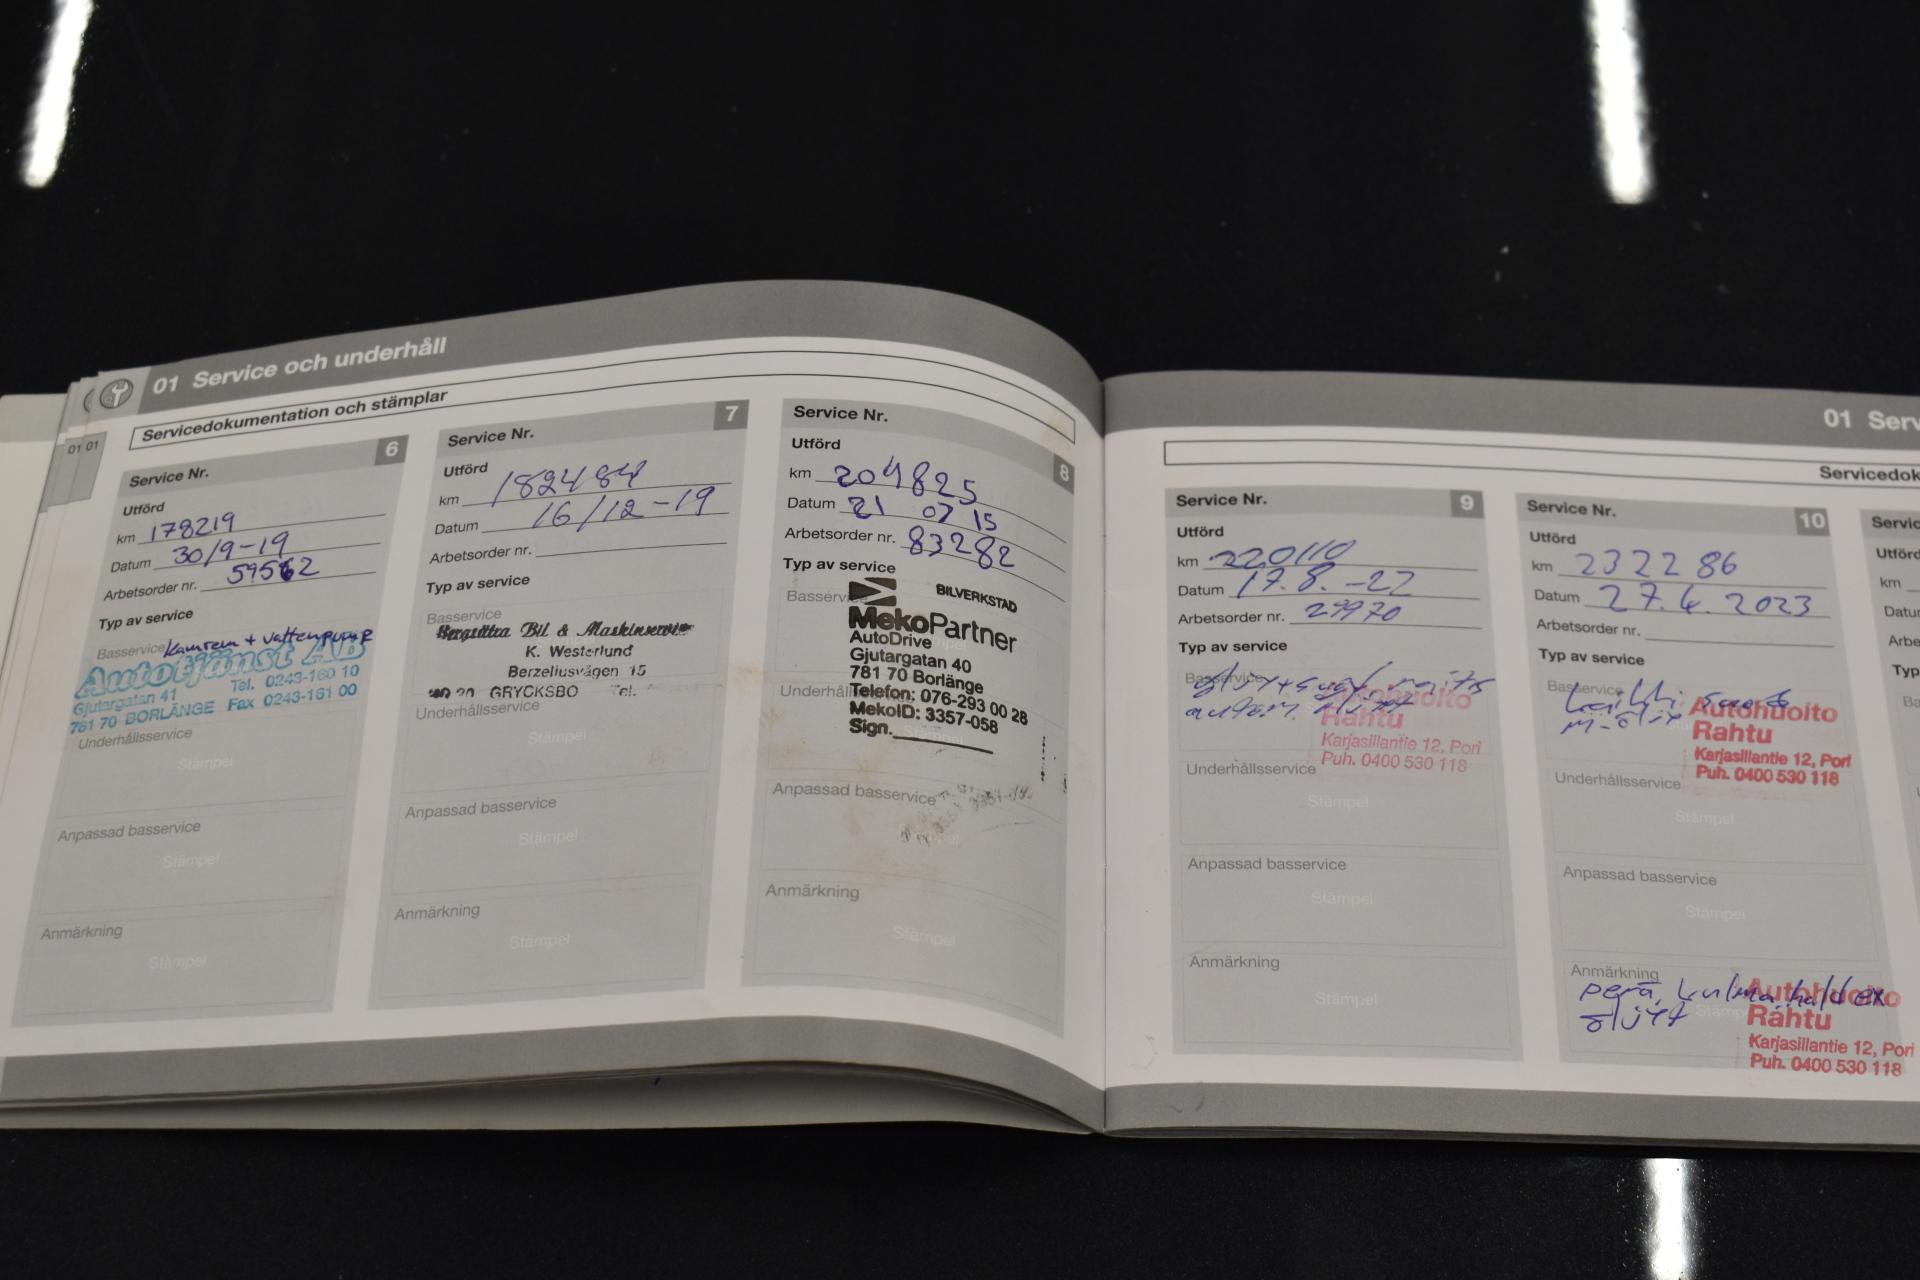 01 Service och underhåll
Servicedokumentation och stämplar
01 01
Service Nr. 6
Utförd
km 178219
Datum 30/9-19
Arbetsorder nr. 59562
Typ av service
Basservice Kamrem + vattenpump
Autotjänst AB
Gjutargatan 41 Tel. 0243-160 10
781 70 BORLÄNGE Fax 0243-161 00
Underhållsservice
Stämpel
Anpassad basservice
Stämpel
Anmärkning
Stämpel
Service Nr. 7
Utförd
km 182484
Datum 16/12-19
Arbetsorder nr.
Typ av service
Basservice
Bil & Maskinservice
K. Westerlund
Berzeliusvägen 15
GRYCKSBO Tel.
Underhållsservice
Stämpel
Anpassad basservice
Stämpel
Anmärkning
Stämpel
Service Nr. 8
Utförd
km 204825
Datum 21 07 15
Arbetsorder nr. 83282
Typ av service
Basservice
BILVERKSTAD
MekoPartner
AutoDrive
Gjutargatan 40
781 70 Borlänge
Telefon: 076-293 00 28
MekoID: 3357-058
Sign.
Underhålls
Stämpel
Anpassad basservice
Stämpel
Anmärkning
Stämpel
01 Serv
Servicedok
Service Nr. 9
Utförd
km 220110
Datum 17.8.-22
Arbetsorder nr. 29970
Typ av service
Basservice
Autohuoito
Rahtu
Karjasillantie 12, Pori
Puh. 0400 530 118
Underhållsservice
Stämpel
Anpassad basservice
Stämpel
Anmärkning
Stämpel
Service Nr. 10
Utförd
km 232286
Datum 27.4.2023
Arbetsorder nr.
Typ av service
Basservice
Autohuoito
Rahtu
Karjasillantie 12, Pori
Puh. 0400 530 118
Underhållsservice
Stämpel
Anpassad basservice
Stämpel
Anmärkning
perä, kulma, haldex
öljyt
Stämpel
Autohuoito
Rahtu
Karjasillantie 12, Pori
Puh. 0400 530 118
Servic
Utförd
km
Datu
Arbe
Typ
Ba